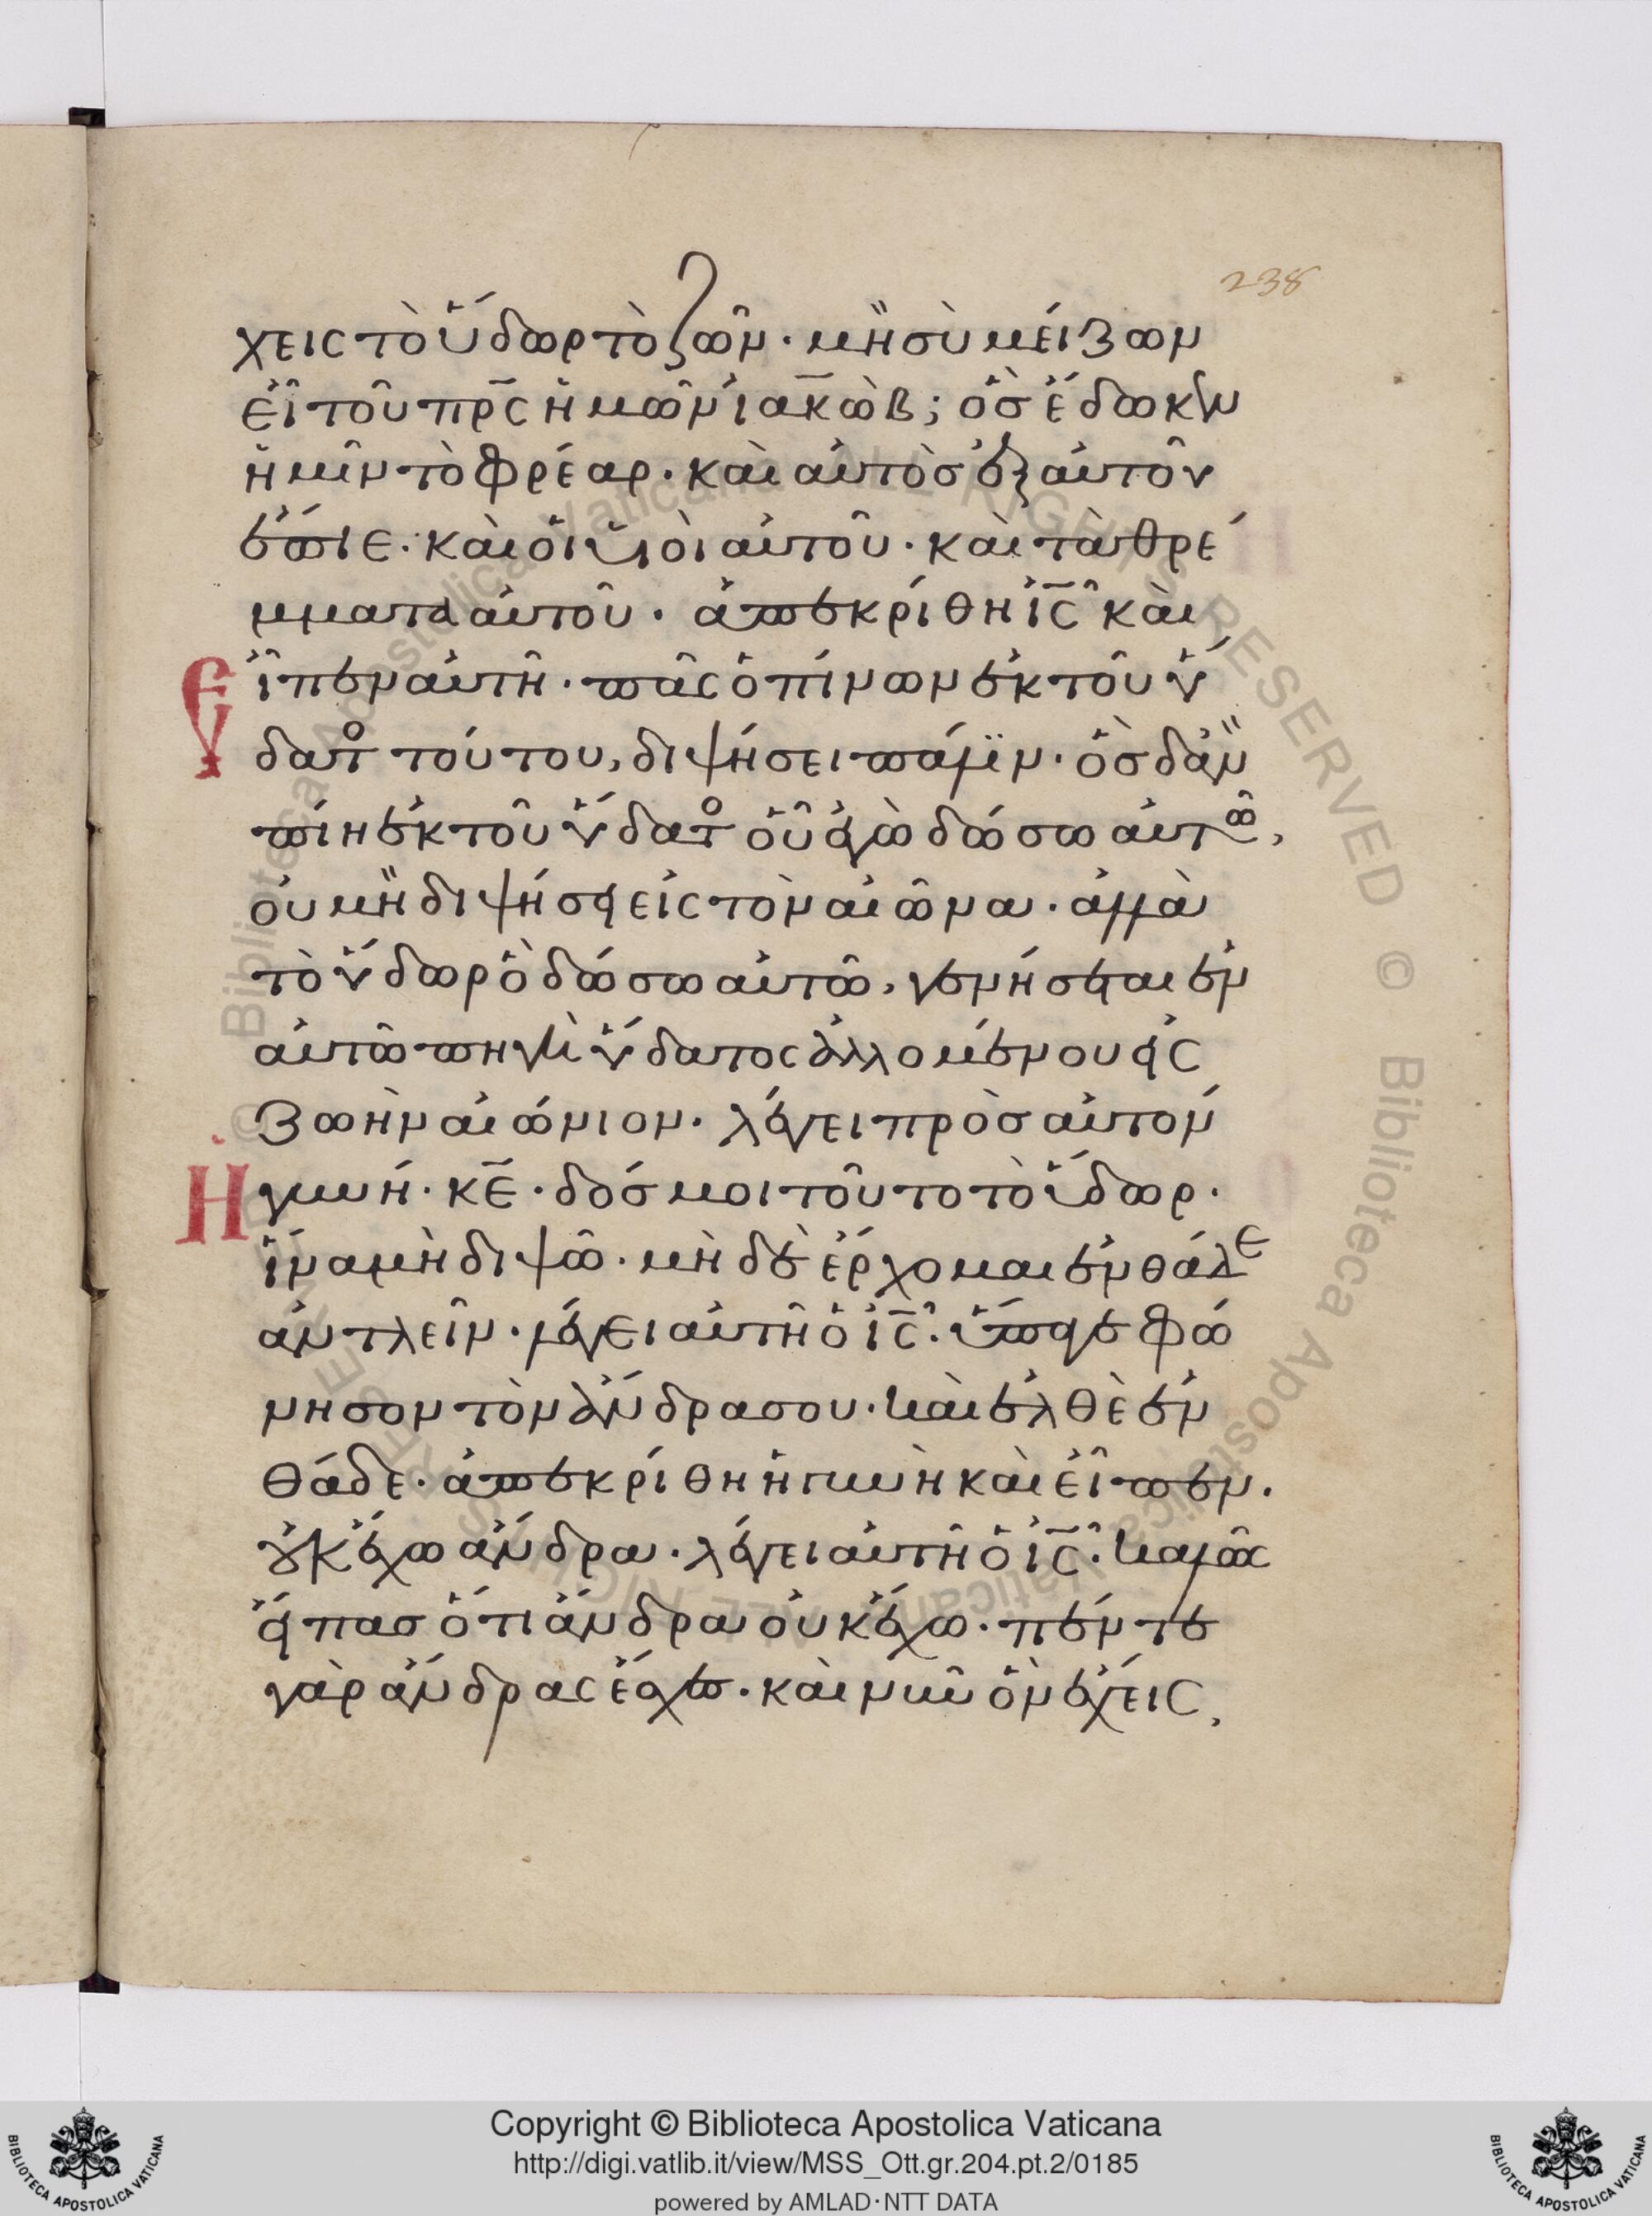 238
χεις τὸ ὕδωρ τὸ ζῶν· μὴ σὺ μείζων
εἶ τοῦ πρ̅ς ἡμῶν ἰακὼβ; ὃσ ἔδωκεν
ἡμῖν τὸ φρέαρ· καὶ αὐτὸσ ἐξ αὐτοῦ
ἔπιε· καὶ οἱ υἱοὶ αὐτοῦ· καὶ τὰ θρέ
μματα αὐτοῦ· ἀπεκρίθη ἰ̅ς καὶ
εἶπεν αὐτῆ· πᾶς ὁ πίνων ἐκ τοῦ ὕ
δατο τούτου, διψήσει πάλϊν· ὃσ δ ἂν
πίη ἐκ τοῦ ὕδατο οὗ ἐγὼ δώσω αὐτῶ,
οὐ μὴ διψήσει εἰς τὸν αἰῶνα· ἀλλὰ
τὸ ὕδωρ ὃ δώσω αὐτῶ, γενήσεται ἐν
αὐτῶ πηγὴ ὕδατος ἁλλομένου εἰς
ζωὴν αἰώνιον· λέγει πρὸσ αὐτον
Ἡ γυνή· κ̅ε· δόσ μοι τοῦτο τὸ ὕδωρ·
ἵνα μὴ διψῶ· μὴ δὲ ἔρχομαι ἐνθάδε
ἀντλεῖν· λέγει αὐτῆ ὁ ἰ̅ς· ὕπαγε φώ
νησον τὸν ἄνδρα σου· καὶ ἐλθὲ ἐν
θάδε· ἀπεκρίθη ἡ γυνὴ καὶ εἶπεν·
οὐκ ἔχω ἄνδρα· λέγει αὐτῆ ὁ ἰ̅ς· καλῶς
εἴπασ ὅτι ἄνδρα οὐκ ἔχω· πέντε
γὰρ ἄνδρας ἔσχες· καὶ νῦν ὃν ἔχεις,
Copyright © Biblioteca Apostolica Vaticana
http://digi.vatlib.it/view/MSS_Ott.gr.204.pt.2/0185
powered by AMLAD·NTT DATA